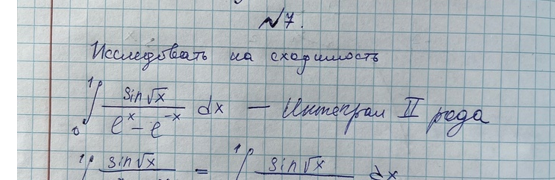 №7.
Исследовать на сходимость
₀¹∫ sin√x / (eˣ - e⁻ˣ) dx — Интеграл II рода
¹∫ sin√x = ¹∫ sin√x dx